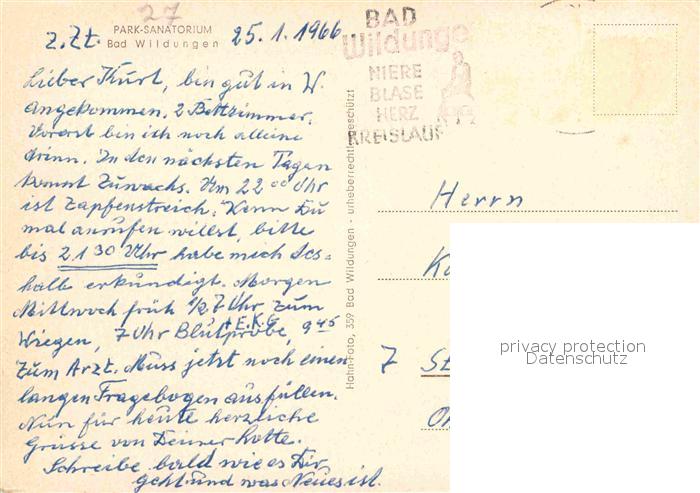 27
PARK-SANATORIUM
z.Zt. Bad Wildungen 25.1.1966
Lieber Kurt, bin gut in W.
angekommen. 2 Bettzimmer.
Vorerst bin ich noch alleine
drinn. In den nächsten Tagen
kommt Zuwachs. Um 22 00 Uhr
ist Zapfenstreich. Wenn Du
mal anrufen willst, bitte
bis 21 30 Uhr habe mich des=
halb erkündigt. Morgen
Mittwoch früh 1/2 7 Uhr zum
Wiegen, 7 Uhr Blutprobe, + E.K.G. 9 45
zum Arzt. Muss jetzt noch einen
langen Fragebogen ausfüllen.
Nun für heute herzliche
Grüsse von Deiner Lotte.
Schreibe bald wie es Dir
geht und was Neues ist.
Hahn-Foto, 359 Bad Wildungen - urheberrechtlich geschützt
BAD
Wildunge
NIERE
BLASE
HERZ
KREISLAUF
Herrn
7 St
privacy protection
Datenschutz